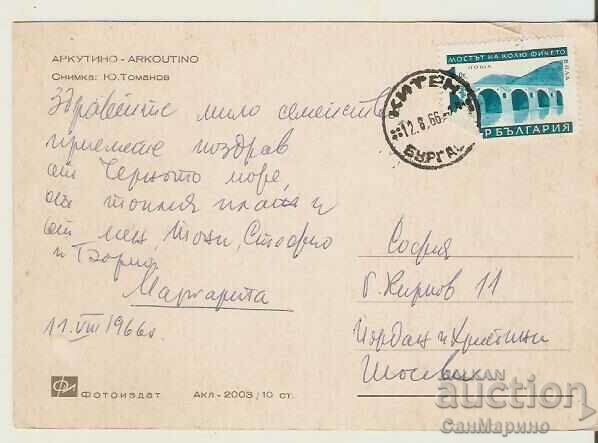 АРКУТИНО - ARKOUTINO
Снимка: Ю.Томанов
Здравейте мило семейство
приемете поздрав
от Черното море,
от топлия плаж и
от мен, Тошо, Стефчо
и
Маргарита
11.VIII 1966г.
МОСТЪТ НА КОЛЮ ФИЧЕТО
ПОЩА
БЯЛА
НР БЪЛГАРИЯ
КИТЕН
12.8.66
БУРГАС
София
11
Йордан и Христина
Фотоиздат
Акл - 2003 / 10 ст.
BALKAN
auction
СанМарино